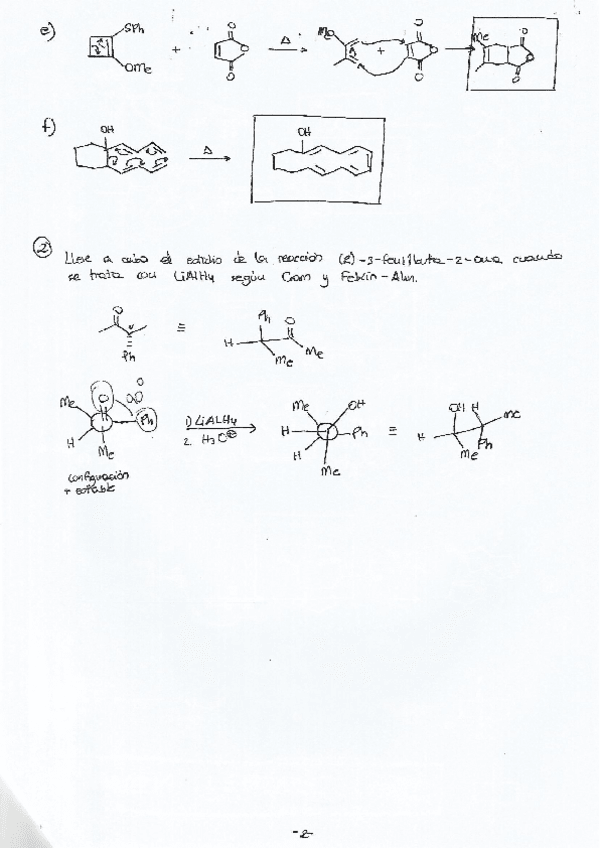 e)
SPh
OMe
+
O
O
O
Δ
MeO
+
O
O
O
Me
O
O
O
f)
OH
Δ
OH
2
Lleve a cabo el estudio de la reacción (R)-3-fenilbuta-2-ona cuando
se trata con LiAlH4 según Cram y Felkin-Ahn.
O
Ph
≡
Ph
O
H
Me
Me
Me
O
Ph
H
Me
configuración
+ estable
1) LiALH4
2. H3O⊕
Me
OH
H
Ph
H
Me
≡
OH H
Me
H
Ph
Me
-2-